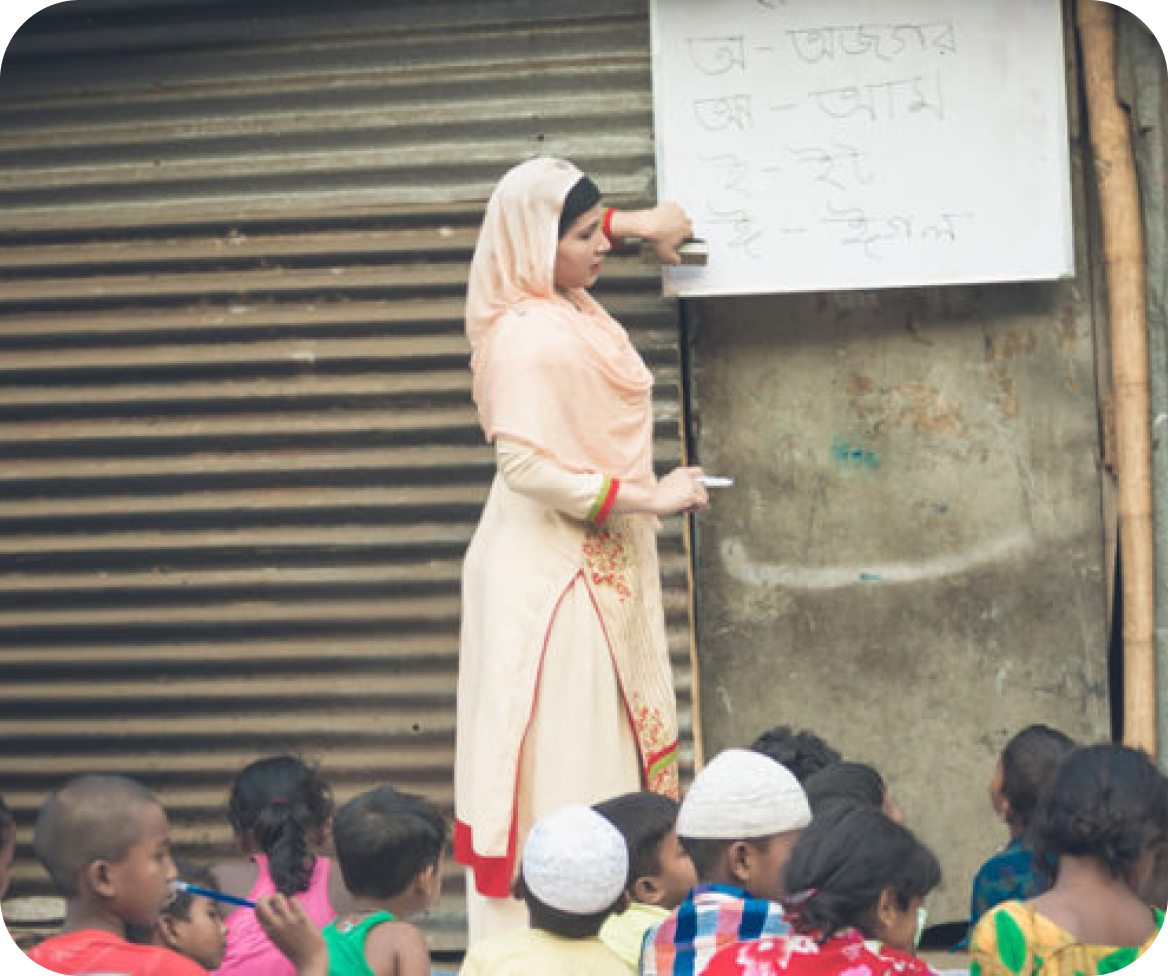 অ - অজগর
আ - আম
ই - ইট
ঈ - ঈগল